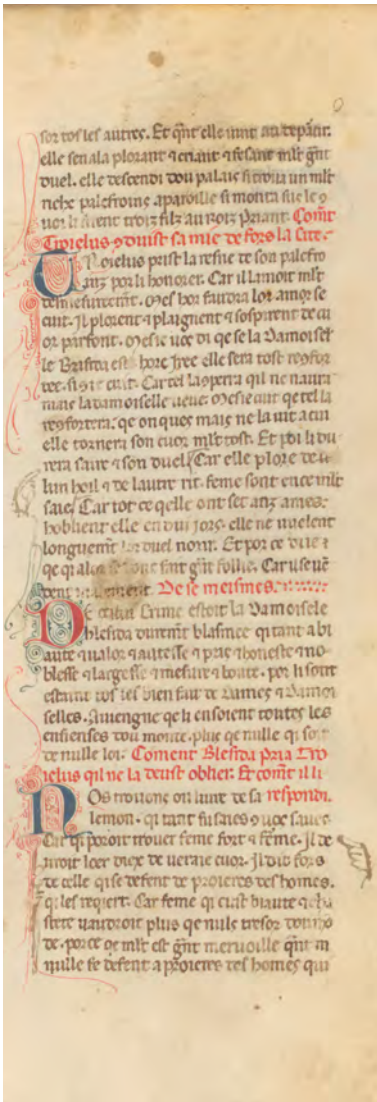 sor tos les autres. Et qñt elle vint au departir.
elle sen ala plorant ⁊ criant ⁊ fesant mlt gñt
duel. elle descendi dou palais si trova un mlt
riche palefroine aparoille si monta sus le 9
voierent trois filz au rois priant. Comt
Troielus 9duist sa mie de fors la cite.
Troielus prist la resne de son palefro
anz por li honorer. Car il lamoit mlt
desmesuremt. Mes hor faudra lor amor se
cuit. Il plorent ⁊ plaignent ⁊ sosprent de cu
or parfont. Mes ie voz di qe se la damoisel
le Brisida est hore iree elle sera tost resfor
tee. Car tel laspera qil ne naura
mais la damoiselle veue. Mes ie cuit qe tel la
resfortera. qe onques mais ne la vit a cui
elle tornera son cuor mlt tost. Et poi li du
rera saut ⁊ son duel. Car elle plore de li
lun hoil ⁊ de lautre rit. feme sont ence mlt
saies Car tot ce qelle ont set anz ames.
hoblient elle en dui iors. elle ne vuelent
longuemt lor duel norir. Et por ce
qe qi sont gñt follie. Car
De se meismes.
De crime estoit la damoisele
blesida duremt blasmee qi tant a bi
aute ⁊ valor ⁊ autesse ⁊ pris ⁊ honeste ⁊ no
blesse ⁊ largesse ⁊ mesure ⁊ bonte. por li sont
estaint tos les bien fait de dames ⁊ damoi
selles. Avengue qe li ensoient toutes les
ensienses dou monte. plus qe nulle qi sont
de nulle loi. Coment Blesida pria Tro
ielus qil ne la deust oblier. Et comt il li
Nos trovons ou livre de sa respondi.
lemon. qi tant fu saies ⁊ voz saves
Car qi poroit trover feme fort ⁊ ferme. Il de
uroit loer diex de veraie cuor. Il dit fors
de celle qi se defent de proieres des homes.
qi les reqiert. Car feme qi eust biaute ⁊ cha
stete vaudroit plus qe nuls tresor dou mo
de. por ce qe mlt est gñt mervoille qñt m
nulle se defent a proieres des homes qui